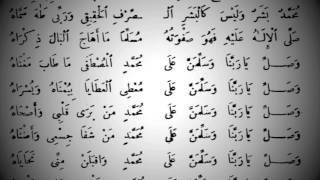 مُحَمَّدٌ بَشَرٌ وَلَيْسَ كَالْبَشَرِ الْـ ـصِرْفِ الْحَقِيقِ وَرَبِّي طٰهَ سَمَّاهُ
صَلَّى الْإِلٰهُ عَلَيْهِ فَهْوَ صَفْوَتُهُ مُسَلِّمًا مَا أَهَاجَ الْبَالَ ذِكْرَاهُ
وَصَلِّ يَا رَبَّنَا وَسَلِّمَنْ عَلَى مُحَمَّدٍ مَنْ عَلَا مَا طَابَ مَغْنَاهُ
وَصَلِّ يَا رَبَّنَا وَسَلِّمَنْ عَلَى مُعْطِي الْعَطَايَا يُمْنَاهُ وَيُسْرَاهُ
وَصَلِّ يَا رَبَّنَا وَسَلِّمَنْ عَلَى مُحَمَّدٍ مَنْ بَرَى قَلْبِي وَأَضْنَاهُ
وَصَلِّ يَا رَبَّنَا وَسَلِّمَنْ عَلَى مُحَمَّدٍ مَنْ شَفَا جِسْمِي وَأَضْنَاهُ
وَصَلِّ يَا رَبَّنَا وَسَلِّمَنْ عَلَى مُحَمَّدٍ وَاقْبَلَنْ مِنِّي تَحَايَاهُ